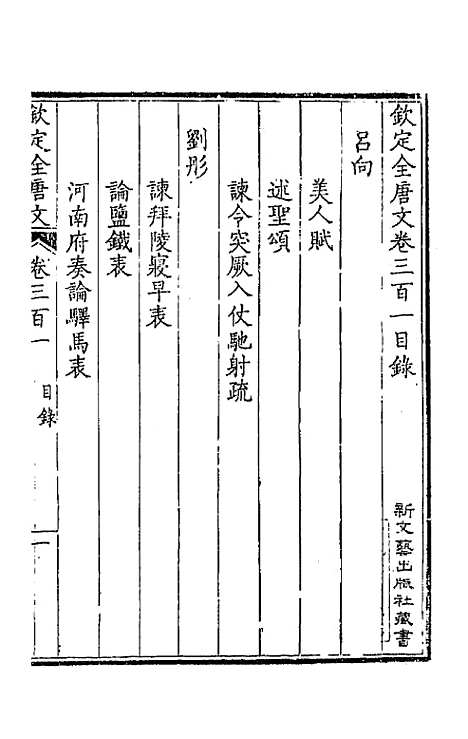 欽定全唐文卷三百一目錄
新文藝出版社藏書
呂向
美人賦
述聖頌
諫令突厥入仗馳射疏
劉彤
諫拜陵寢早表
論鹽鐵表
河南府奏論驛馬表
欽定全唐文
卷三百一
目錄
一